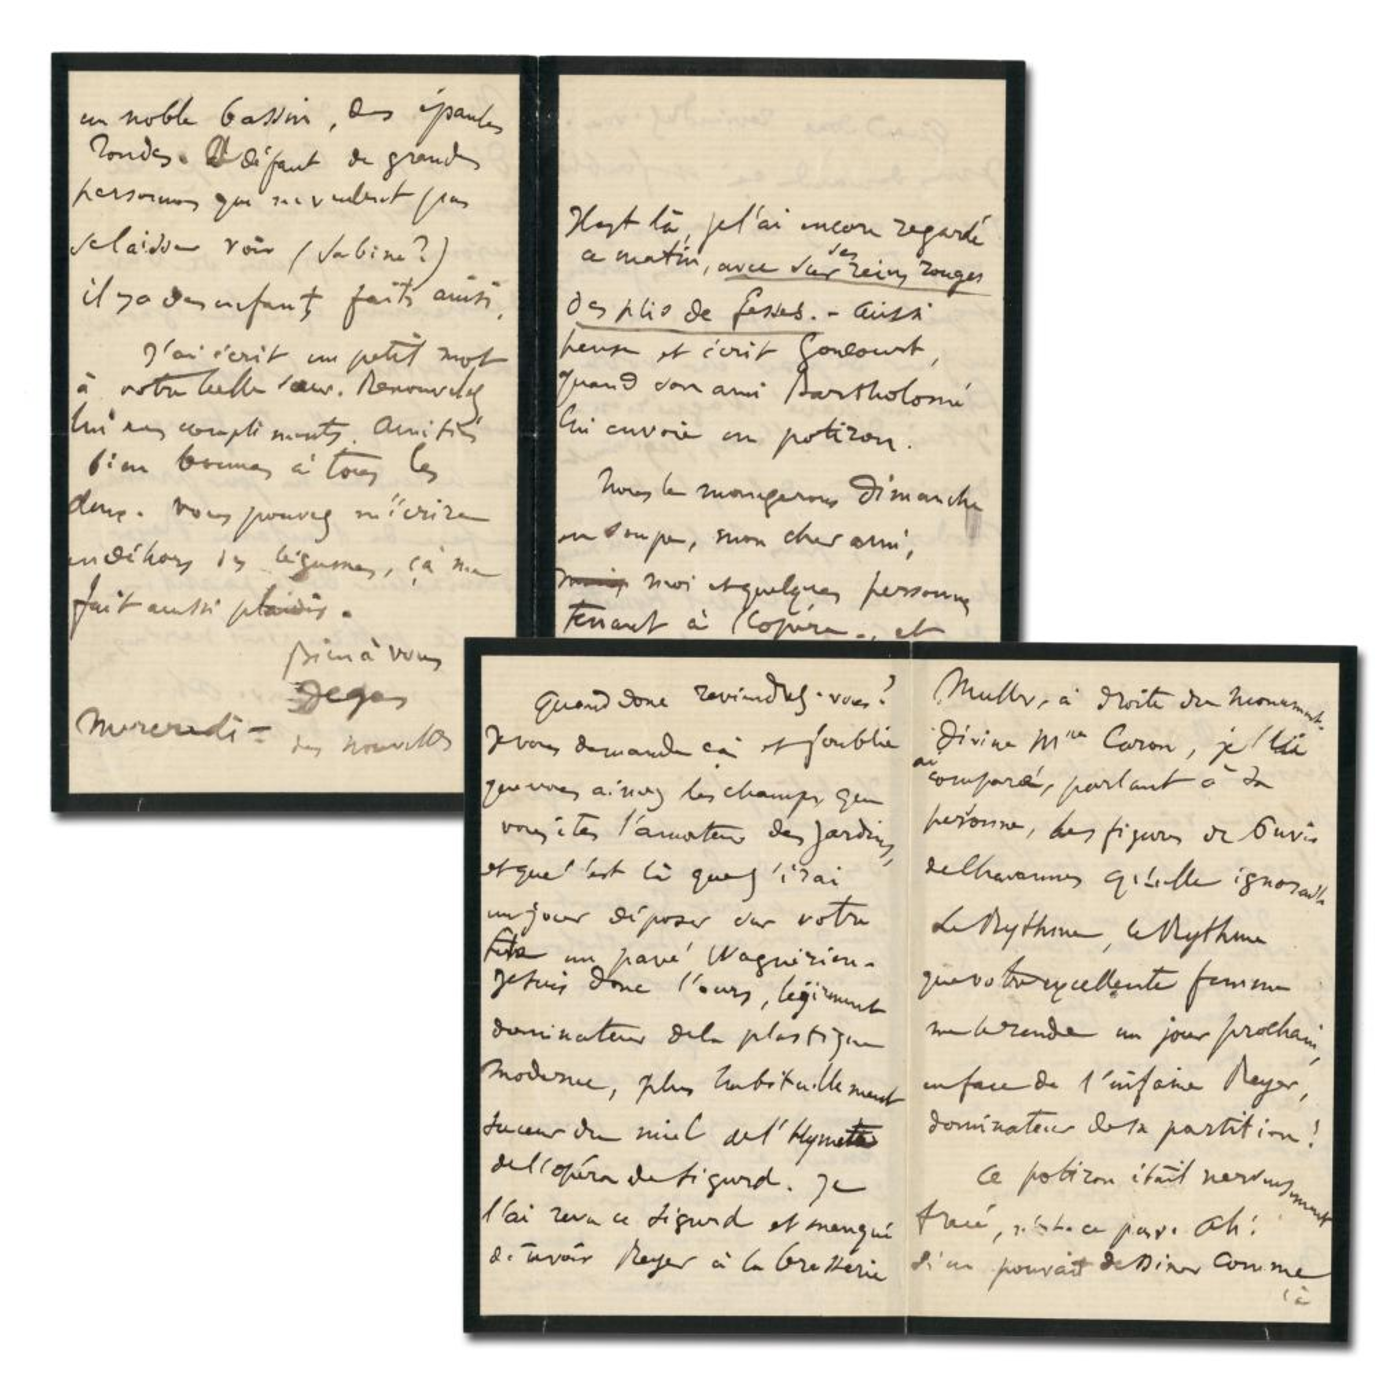 Il est là, je l'ai encore regardé
ce matin, avec ses reins rouges
des plis de fesses. - Aussi
pense et écrit Goncourt,
quand son ami Bartholomé
lui envoie un potiron.
Nous le mangerons Dimanche
en soupe, mon cher ami,
moi et quelques personnes
tenant à l'opéra, et
Quand donc reviendrez-vous?
Je vous demande çà et j'oublie
que vous aimez les champs, que
vous êtes l'amateur des jardins,
et que c'est là que j'irai
un jour déposer sur votre
tête un pavé Wagnérien.
Je suis donc l'ours, légèrement
dominateur de la plastique
moderne, plus habituellement
suceur du miel de l'Hymette
de l'opéra de Sigurd. Je
l'ai revu ce Sigurd et manqué
de revoir Reyer à la brasserie
Muller, à droite du monument.
Divine Mme Caron, je l'ai
comparée, parlant à sa
personne, les figures de Puvis
de Chavannes qu'elle ignorait
Le Rythme, le Rythme
que votre excellente femme
me le rende un jour prochain,
en face de l'infâme Reyer,
dominateur de sa partition!
Ce potiron était nerveusement
tracé, n'est-ce pas. Ah!
si on pouvait dessiner comme
çà
un noble bassin, des épaules
rondes. A défaut de grandes
personnes qui ne veulent pas
se laisser voir (Sabine?)
il y a des enfants faits ainsi.
J'ai écrit un petit mot
à votre belle sœur. Renouvelez
lui mes compliments. Amitiés
bien bonnes à tous les
deux. Vous pouvez m'écrire
en dehors des légumes, çà me
fait aussi plaisir.
Bien à vous
Degas
Mercredi - des nouvelles